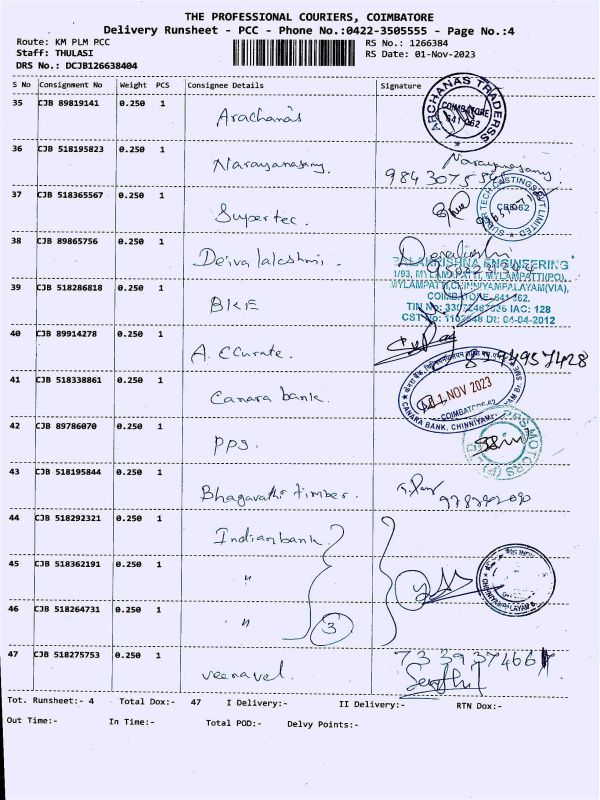 THE PROFESSIONAL COURIERS, COIMBATORE
Delivery Runsheet - PCC - Phone No.:0422-3505555 - Page No.:4
Route: KM PLM PCC RS No.: 1266384
Staff: THULASI RS Date: 01-Nov-2023
DRS No.: DCJB126638404
S No Consignment No Weight PCS Consignee Details Signature
35 CJB 89819141 0.250 1 Arachana's ARCHANAS TRADERSS COIMBATORE 641 062
36 CJB 518195823 0.250 1 Narayanasamy. Narayanasamy
37 CJB 518365567 0.250 1 Supertec. SUPER TECH CASTINGS PVT LIMITED CBE-62
38 CJB 89865756 0.250 1 Deivalakshmi.
39 CJB 518286818 0.250 1 BKE BALAKRISHNA ENGINEERING
1/93, MYLAMPATTI, MYLAMPATTI(PO),
MYLAMPATTI,CHINNIYAMPALAYAM(VIA),
COIMBATORE-641 062.
IAC: 128
Dt: 04-04-2012
40 CJB 89914278 0.250 1 A. CCurate.
41 CJB 518338861 0.250 1 Canara bank. 01 NOV 2023
42 CJB 89786070 0.250 1 PPS.
43 CJB 518195844 0.250 1 Bhagavathi timber.
44 CJB 518292321 0.250 1 Indianbank.
45 CJB 518362191 0.250 1 "
46 CJB 518264731 0.250 1 " 3
47 CJB 518275753 0.250 1 veeravel. Senthil
Tot. Runsheet:- 4 Total Dox:- 47 I Delivery:- II Delivery:- RTN Dox:-
Out Time:- In Time:- Total POD:- Delvy Points:-